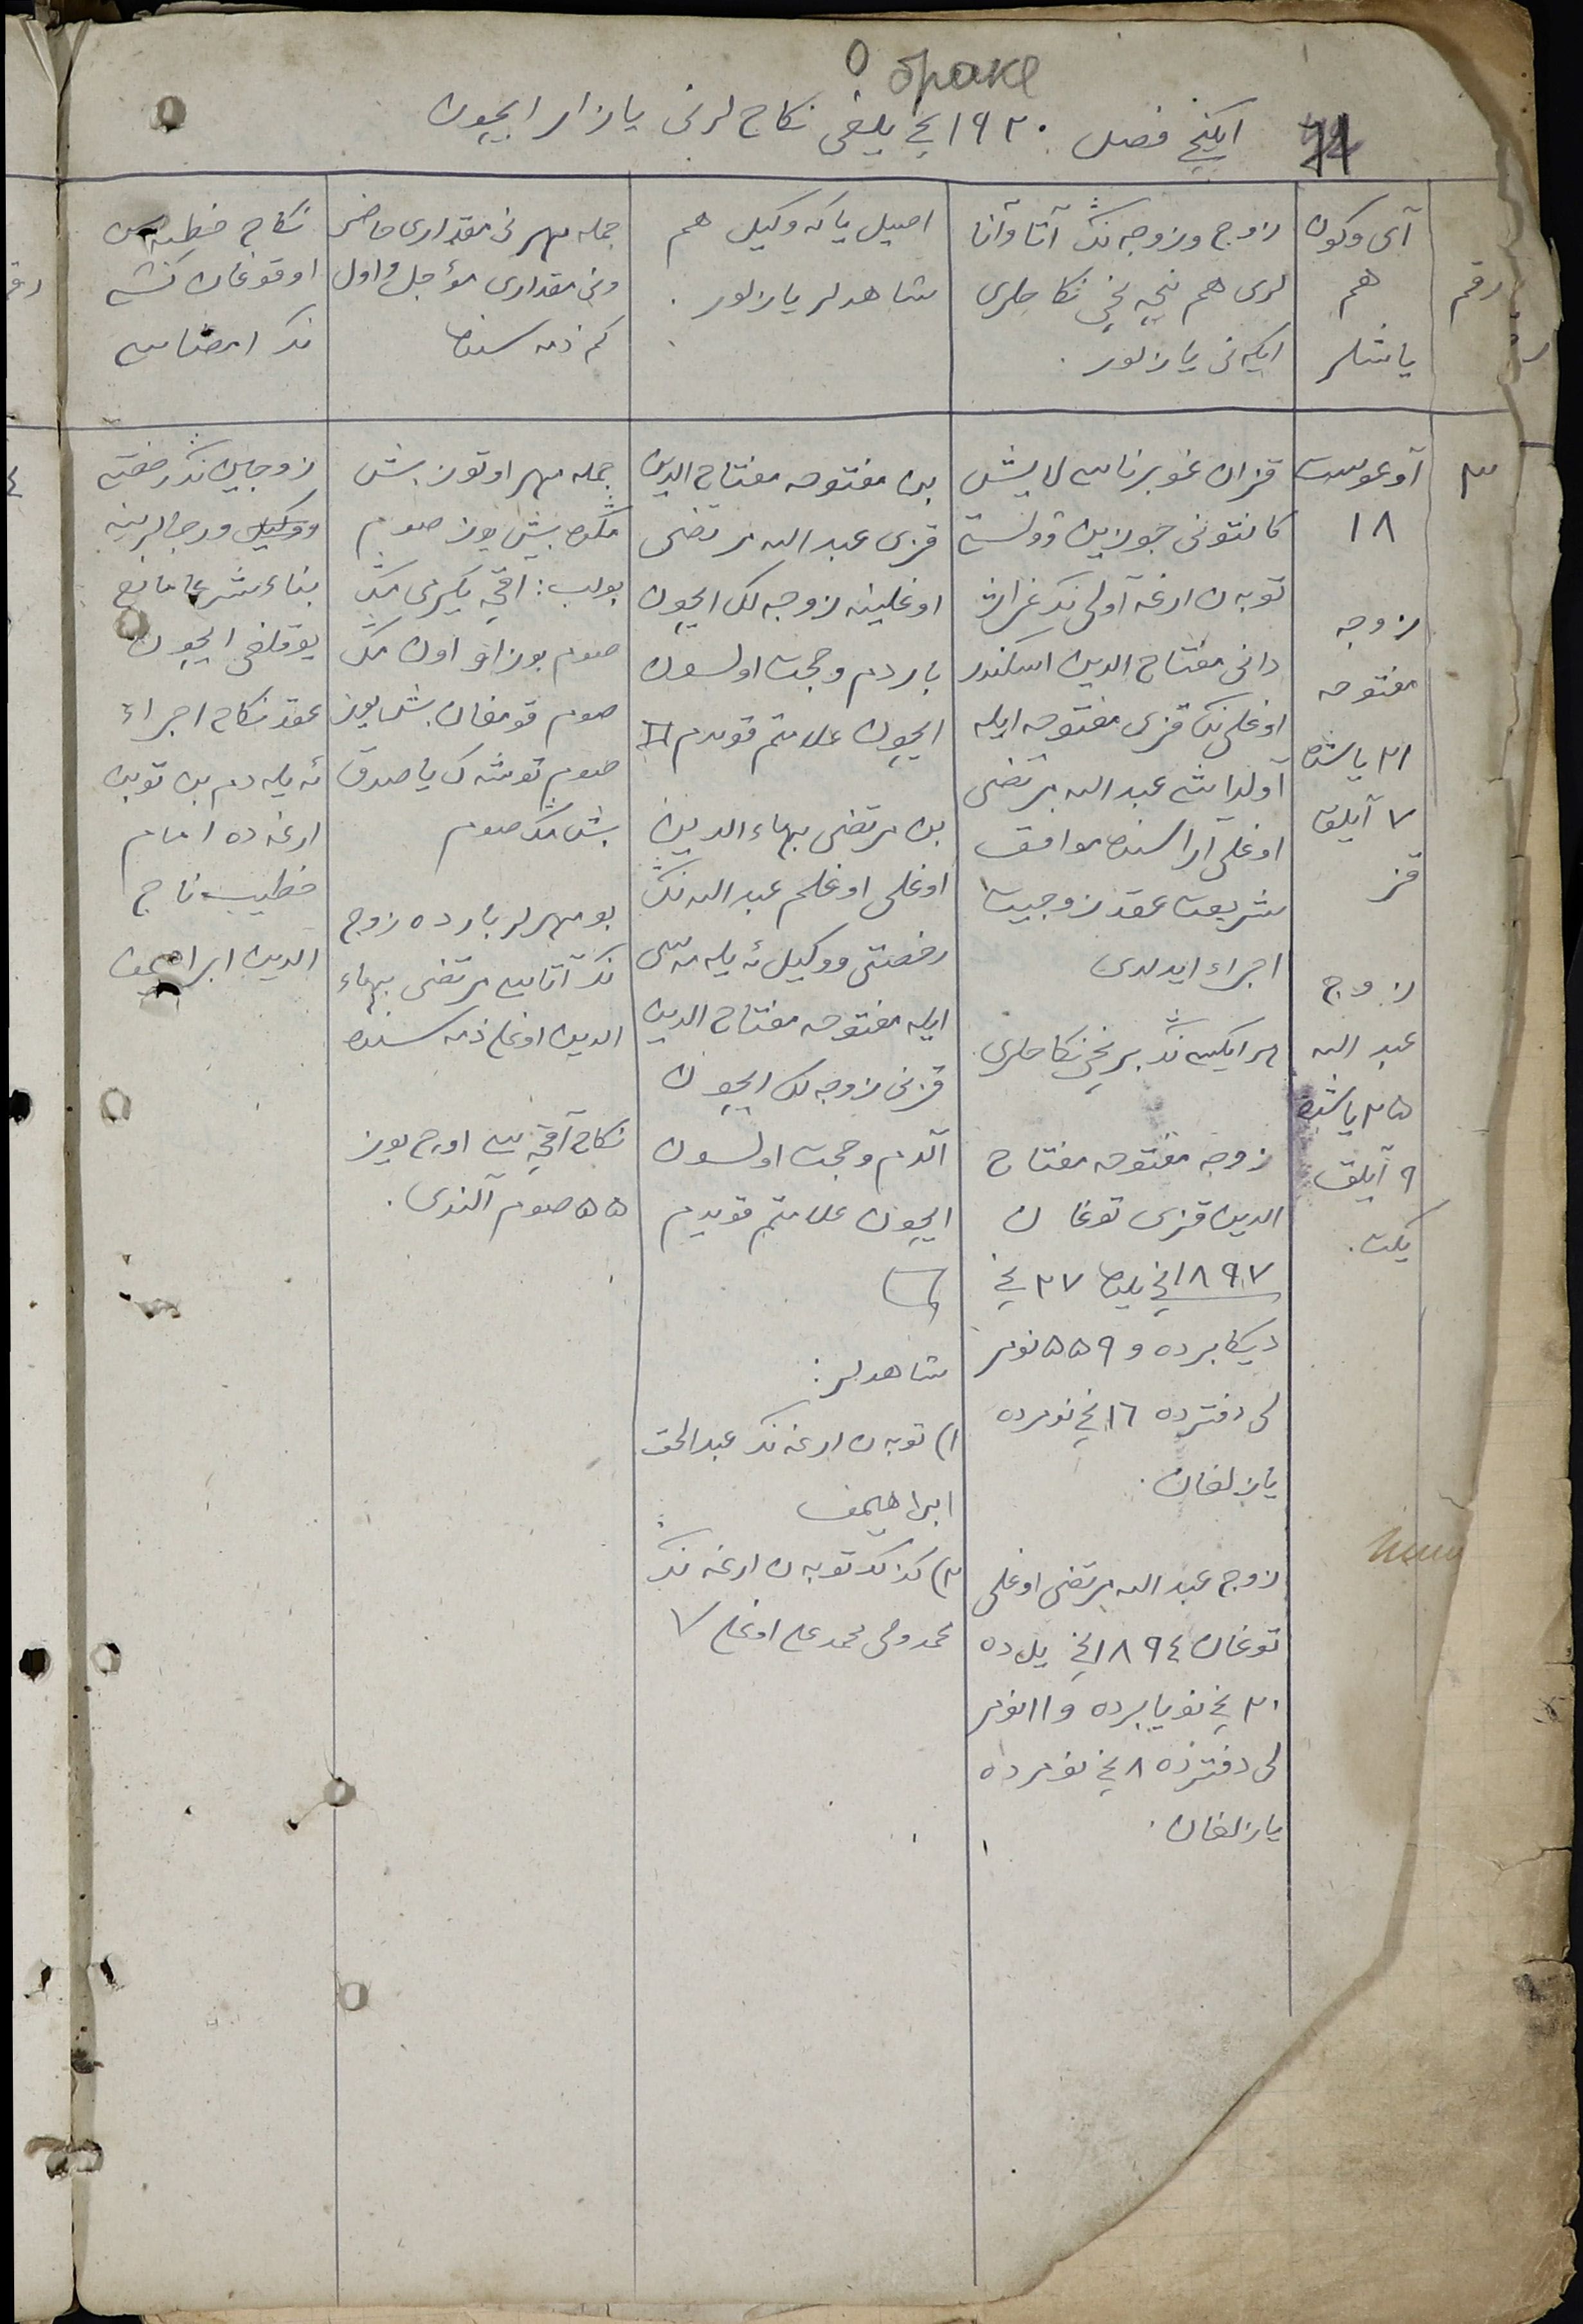 О браке
71
ایکنچی فصل ۱۹۲۰ نچی یلغی نکاح لرنی یازار ایچون
رقم
آی وکون
هم
یاشلر
زوج وزوجه ننڭ آتا وآنا
لری هم نیچه نچی نکاحلری
ایکه نی یازلور.
اصیل یاکه وکیل هم
شاهدلر یازلور.
جمله مهرنی مقداری حاضر
ونی مقداری مؤجل واول
کم ذمه سنده
نکاح خطبه سن
اوقوغان کشی
نڭ امضاسی
۳
آوغوست
۱۸
زوجه
مفتوحه
۲۱ یاشنده
۷ آیلق
قز
زوج
عبد الله
۲۵ یاشنده
۹ آیلق
یکت.
قزان غوبرناسی لایش
کانتونی جوزیین وولست
توبه ن ارغه آولی نڭ غراژ
دانی مفتاح الدین اسکندر
اوغلی نڭ قزی مفتوحه ایله
آولداشی عبد الله مرتضی
اوغلی آراسنده موافق
شریعت عقد زوجیت
اجراء ایدلدی
هر ایکیسی نڭ برنچی نکاحلری.
زوجه مفتوحه مفتاح
الدین قزی توغان
۱۸۹۷ نچی یلده ۲۷ نچی
دیکابرده و ۵۵۹ نومر
لی دفترده ۱۶ نچی نومرده
یازلغان.
زوج عبد الله مرتضی اوغلی
توغان ۱۸۹٤ نچی یلده
۲۰ نچی نویابرده و ۱۱ نومر
لی دفترده ۸ نچی نومرده
یازلغان.
بن مفتوحه مفتاح الدین
قزی عبد الله مرتضی
اوغلینه زوجه لک ایچون
باردم وحجت اولسون
ایچون علامتم قویدم
بن مرتضی بهاء الدین
اوغلی اوغلم عبد الله ننڭ
رخصتی ووکیل ئه یله مه سی
ایله مفتوحه مفتاح الدین
قزنی زوجه لک ایچون
آلدم وحجت اولسون
ایچون علامتم قویدم
شاهدلر:
۱) توبه ن ارغه نڭ عبد الحق
ابراهیمف
۲) کذلک توبه ن ارغه نڭ
محمدولی محمدعلی اوغلی
جمله مهر اوتوز بش
مڭده بش یوز صوم
بولب: آقچه یکرمی مڭ
صوم بوزاو اون مڭ
صوم قومغان بش یوز
صوم توشه ک یاصدق
بش مڭ صوم
بو مهرلر بارده زوج
نڭ آتاسی مرتضی بهاء
الدین اوغلی ذمه سنده
نکاح آقچه سی اوچ یوز
۵۵ صوم آلندی.
زوجین نڭ رخصتی
ووکیل ورجالرینه
بناء شرعا مانع
یوقلغی ایچون
عقد نکاح اجراء
ئه یله دم بن توبن
ارغه ده امام
خطیب تاج
الدین ابراهیمف